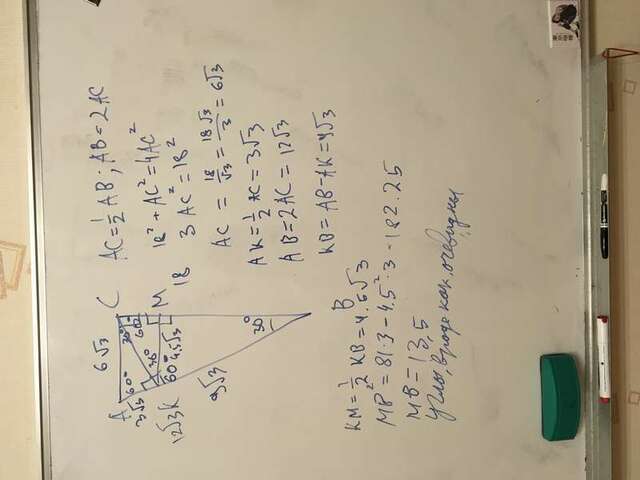 AC = 1/2 AB; AB = 2AC
18² + AC² = 4AC²
3 AC² = 18²
AC = 18/√3 = 18√3/3 = 6√3
AK = 1/2 AC = 3√3
AB = 2AC = 12√3
KB = AB - AK = 9√3
C
6√3
A
60°
30°
60°
M
18
3√3
30°
60°
4.5√3
12√3
K
9√3
30°
B
KM = 1/2 KB = 4.5√3
MB² = 81·3 - 4.5²·3 = 182.25
MB = 13,5
углы, вроде как, очевидны